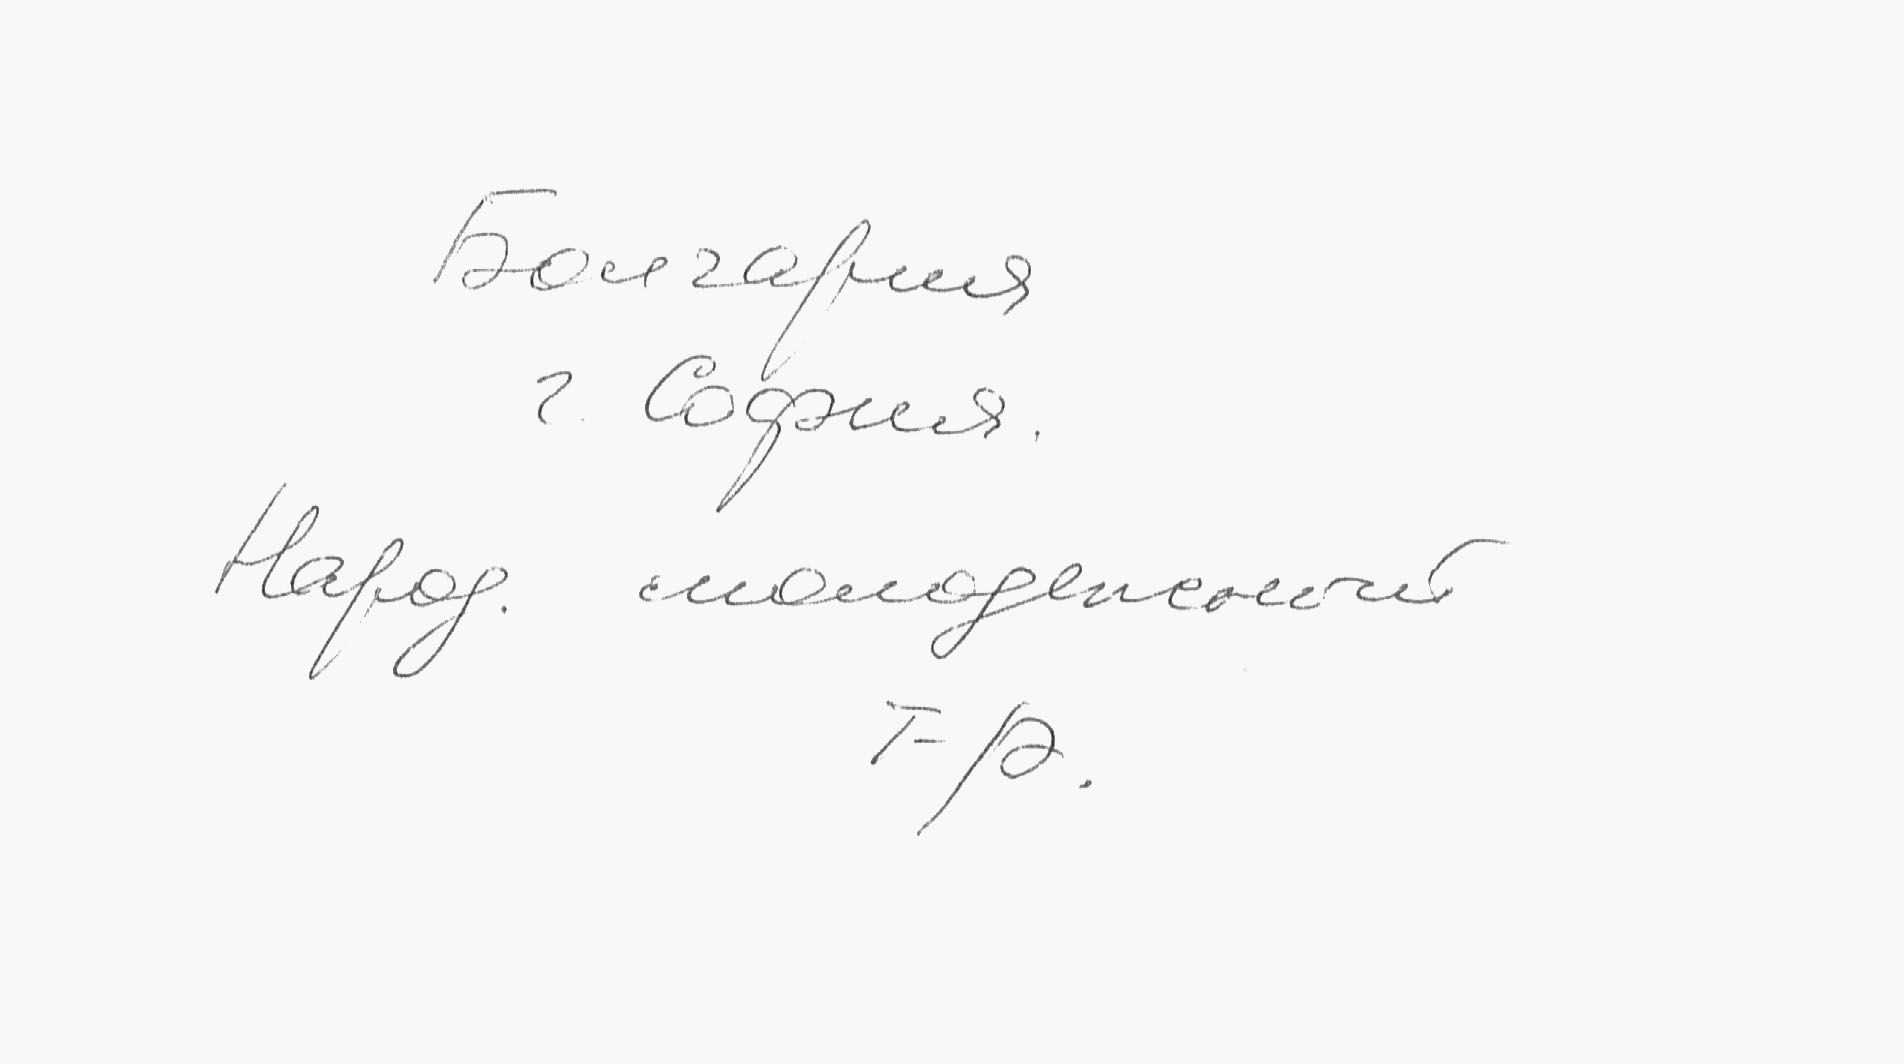 Болгария
г. София.
Народ. молодежный
т-р.